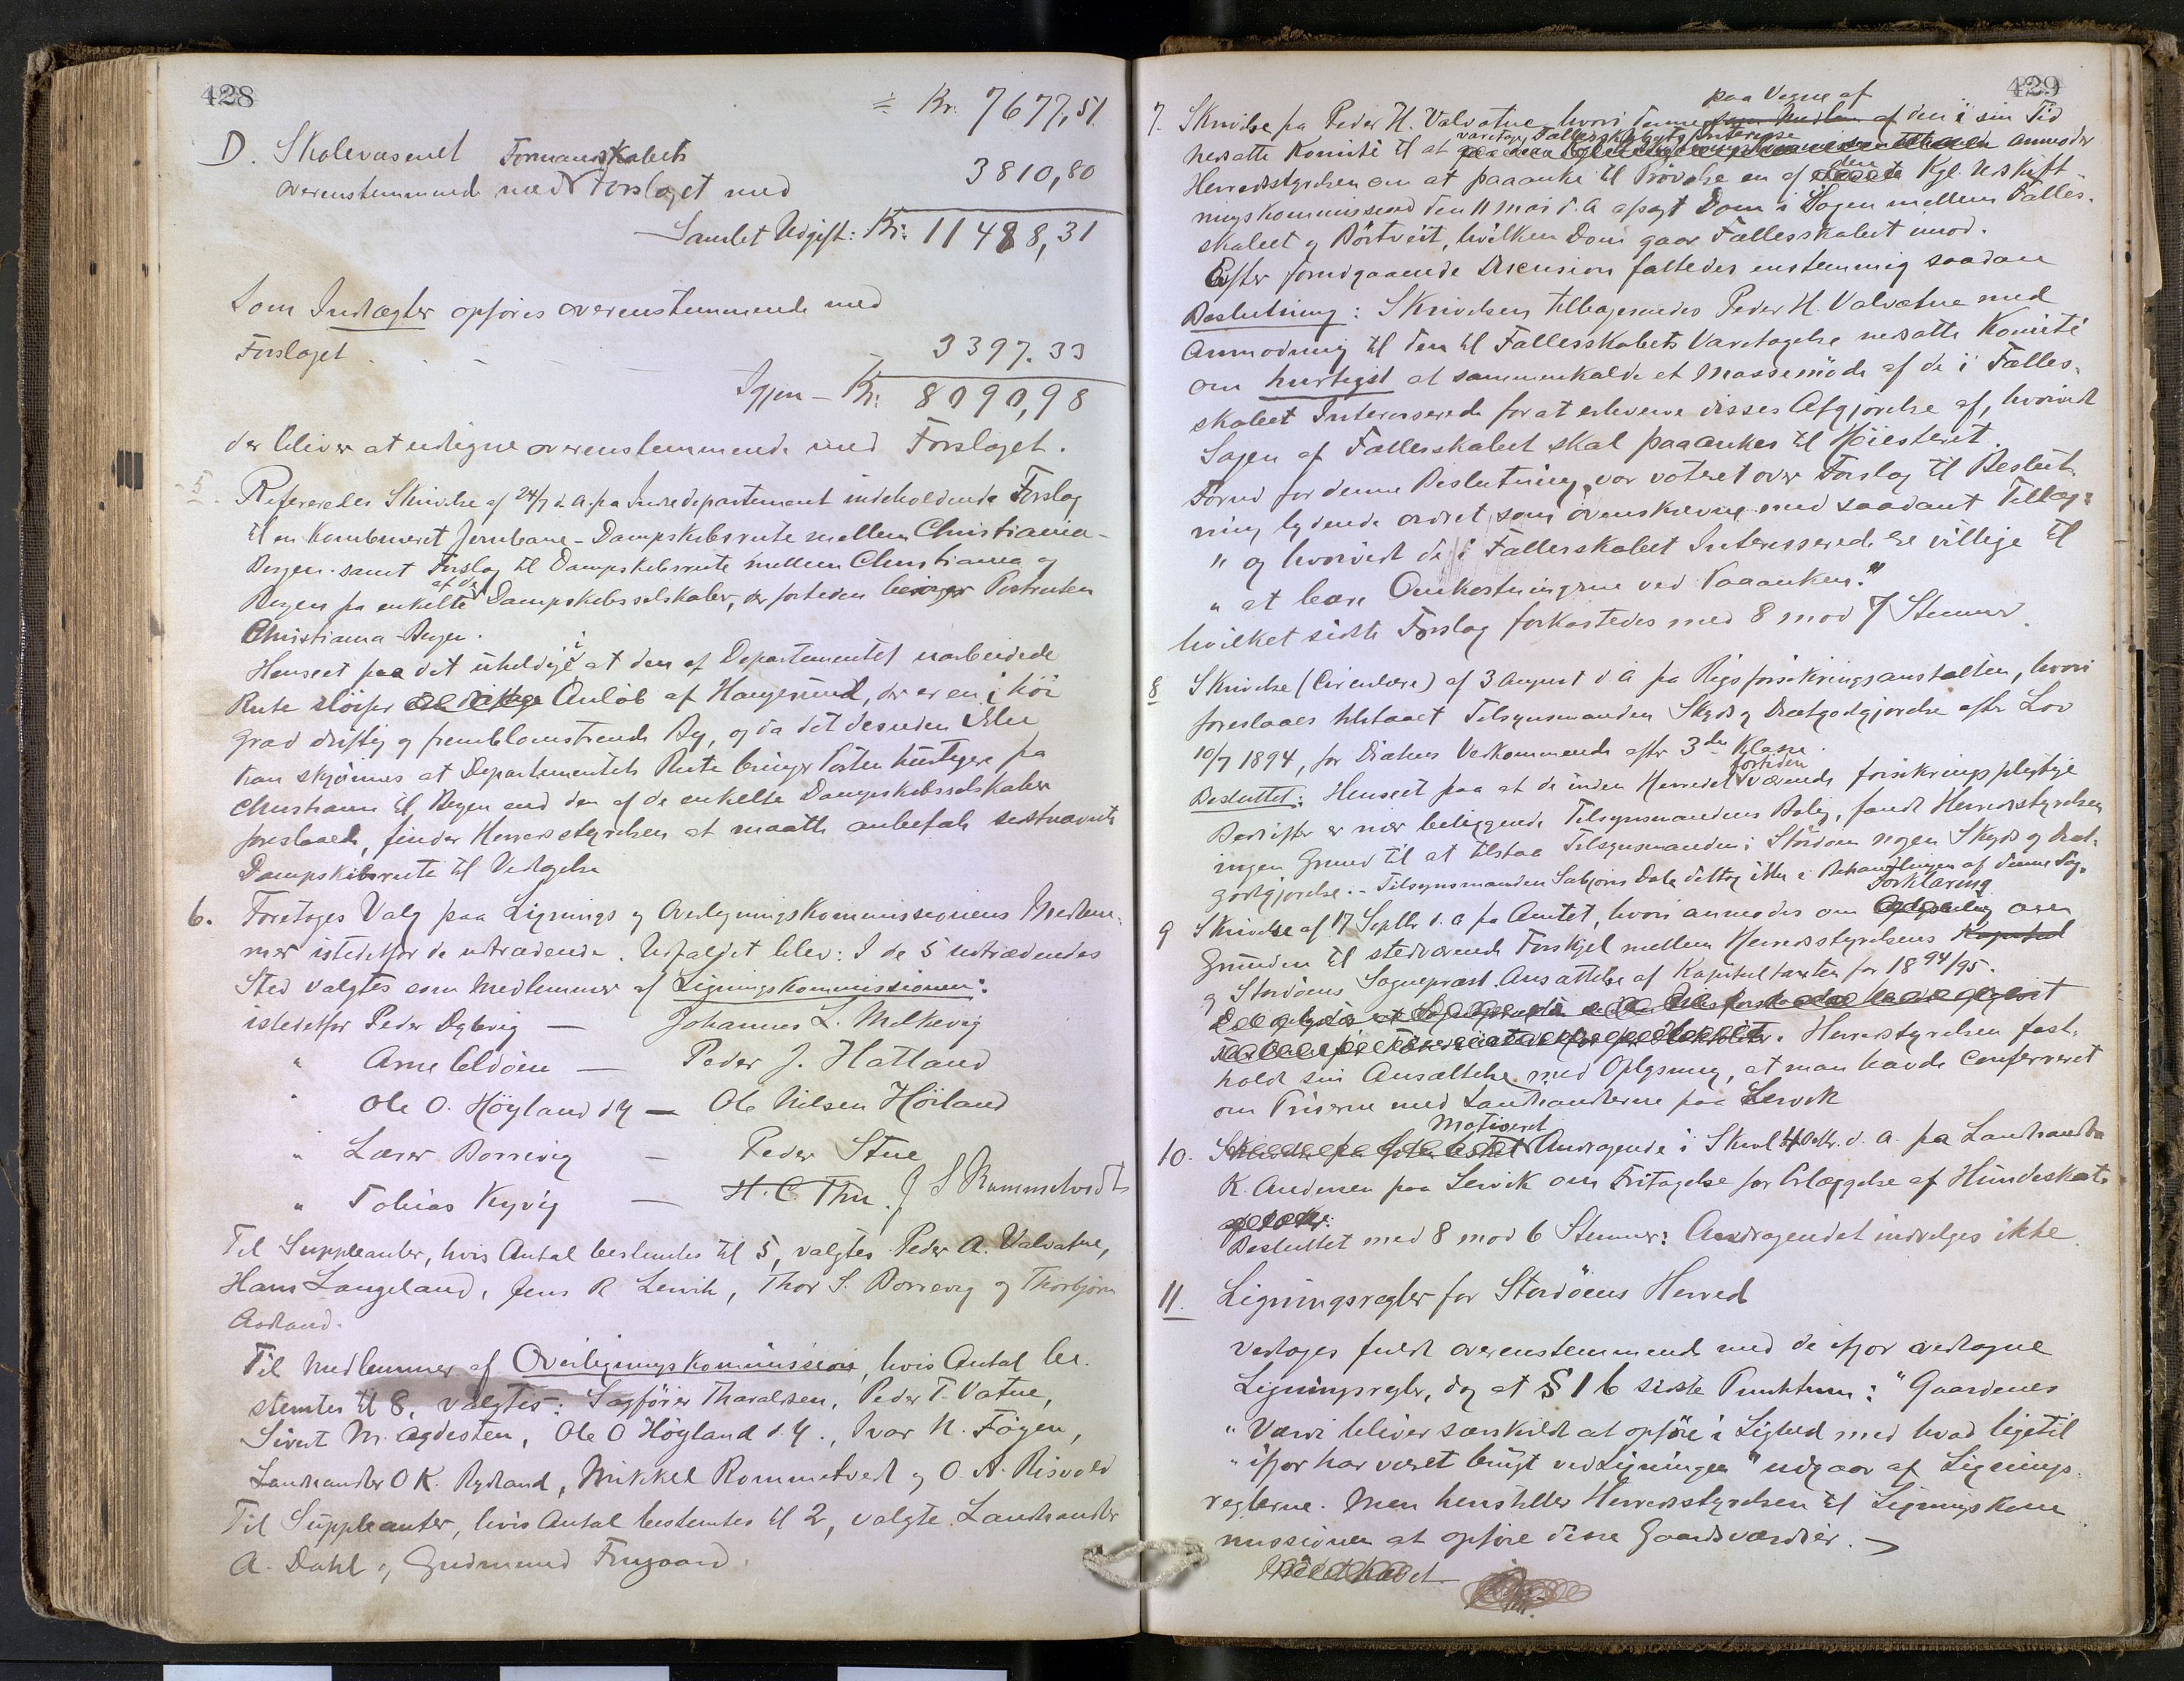 428
÷ Kr. 7677,51.
D. Skolevæsenet Formandskabets
overenstemmende med Forslaget med 3810,80
Samlet Udgift: Kr. 11488,31
Som Indtægter opføres overenstemmende med
Forslaget 3397.33
Igjen – Kr. 8090,98
der bliver at udligne overenstemmende med Forslaget.
5. Refereredes Skrivelse af 24/7 d. A. fra Indredepartement indeholdende Forslag
til en Kombineret Jernbane-Dampskibsrute mellem Christiania-
Bergen samt Forslag til Dampskibsrute mellem Christiania og
Bergen fra enkelte af de Dampskibsselskaber, der fortiden besørger Postruten
Christiania-Bergen.
Henseet paa det uheldige i at den af Departementet uarbeidede
Rute sløifer Anløb af Haugesund, der er en i høi
Grad driftig og fremblomstrende By, og da det desuden ikke
kan skjønnes at Departementets Rute bringer Posten hurtigere fra
Christiania til Bergen end den af de enkelte Dampskibsselskaber
foreslaaede, finder Herredsstyrelsen at maatte anbefale sidstnævnte
Dampskibsrute til Vedtagelse
6. Foretoges Valg paa Lignings og Overligningskommissionens Medlem-
mer istedetfor de udtrædende. Udfaldet blev: I de 5 udtrædendes
Sted valgtes som Medlemmer af Ligningskommissionen:
istedetfor Peder Dybvig — Johannes L. Melkevig
" Arne Eldøien — Peder J. Hatland
" Ole O. Høyland d.y. — Ole Nilsen Høiland
" Lærer Borrevig — Peder Stue
" Tobias Kyvig — H. C. Thu. J S Rummelvedt
Til Suppleanter, hvis Antal bestemtes til 5, valgtes Peder A. Valvatne,
Hans Langeland, Jens R Lervik, Thor S. Borrevig og Thorbjørn
Aadland.
Til Medlemmer af Overligningskommission, hvis Antal be-
stemtes til 8, valgtes: Sagfører Tharaldsen, Peder T. Vatne,
Sivert M. Agdesten, Ole O Høyland d.y., Ivar N. Føyen,
Landhandler O K. Rydland, Mikkel Rommetvedt og O. A. Risvold
Til Suppleanter, hvis Antal bestemtes til 2, valgte Landhandler
A. Dahl og Gudmund Frugaard.
429
7. Skrivelse fra Peder H. Valvatne hvori denne paa Vegne af den i sin Tid
nedsatte Komité til at varetage Fællesskabets Interesse anmoder
Herredsstyrelsen om at paaanke til Prøvelse en af den Kgl. Udskift-
ningskommission den 11 Mai d. A afsagt Dom i Sagen mellem Fælles-
skabet og Børtveit, hvilken Dom gaar Fællesskabet imod.
Efter forudgaaende Discussion fattedes enstemmig saadan
Beslutning: Skrivelsen tilbagesendes Peder H. Valvatne med
Anmodning til den til Fællesskabets Varetagelse nedsatte Komité
om hurtigst at sammenkalde et Massemøde af de i Fælles-
skabet Interesserede for at erhverve disses Afgjørelse af, hvorvidt
Sagen af Fællesskabet skal paaankes til Høiesteret.
Forud for denne Beslutning var voteret over Forslag til Beslut-
ning lydende ordret som ovenskrevne med saadant Tillæg:
" og hvorvidt de i Fællesskabet Interesserede ere villige til
" at bære Omkostningerne ved Paaanken."
hvilket sidste Forslag forkastedes med 8 mod 7 Stemmer.
8 Skrivelse (Circulære) af 3 August d. A fra Rigsforsikringsanstalten, hvori
foreslaaes tilstaaet Tilsynsmanden Skyds og Diætgodtgjørelse efter Lov
10/7 1894, for Diætens Vedkommende efter 3die Klasse.
Besluttet: Henseet paa at de inden Herredet fortiden værende forsikringspligtige
Bedrifter er nær beliggende Tilsynsmandens Bolig, fandt Herredsstyrelsen
ingen Grund til at tilstaa Tilsynsmanden i Stordøen nogen Skyds og Diæt-
godtgjørelse. – Tilsynsmanden Salzjoris Dale deltog ikke i Behandlingen af denne Sag.
9 Skrivelse af 17 Septbr d. a fra Amtet, hvori anmodes om Forklaring over
Grunden til stedværende Forskjel mellem Herredsstyrelsens Kapitul
og Stordøens Sognepræst Ansættelse af Kapitultaxten for 1894/95.
Herredsstyrelsen fast-
holdt sin Ansættelse med Oplysning, at man havde Conferreret
om Priserne med Landhandlerne paa Lervik
10. Motiveret Andragende i Skriv. 4 Oktbr. d. A. fra Landhandler
R. Andersen paa Lervik om Fritagelse for Erlæggelse af Hundeskat
Besluttet med 8 mod 6 Stemmer: Andragendet indvilges ikke
11. Ligningsregler for Stordøens Herred
vedtoges fuldt overenstemmende med de ifjor vedtagne
Ligningsregler, dog at § 1 b sidste Punktum: "Gaardenes
" Værdi bliver særskildt at opføre i Lighed med hvad ligetil
" ifjor har været brugt ved Ligningen" udgaar af Lignings-
reglerne. Men henstiller Herredsstyrelsen til Ligningskom
missionen at opføre disse Gaardsværdier.